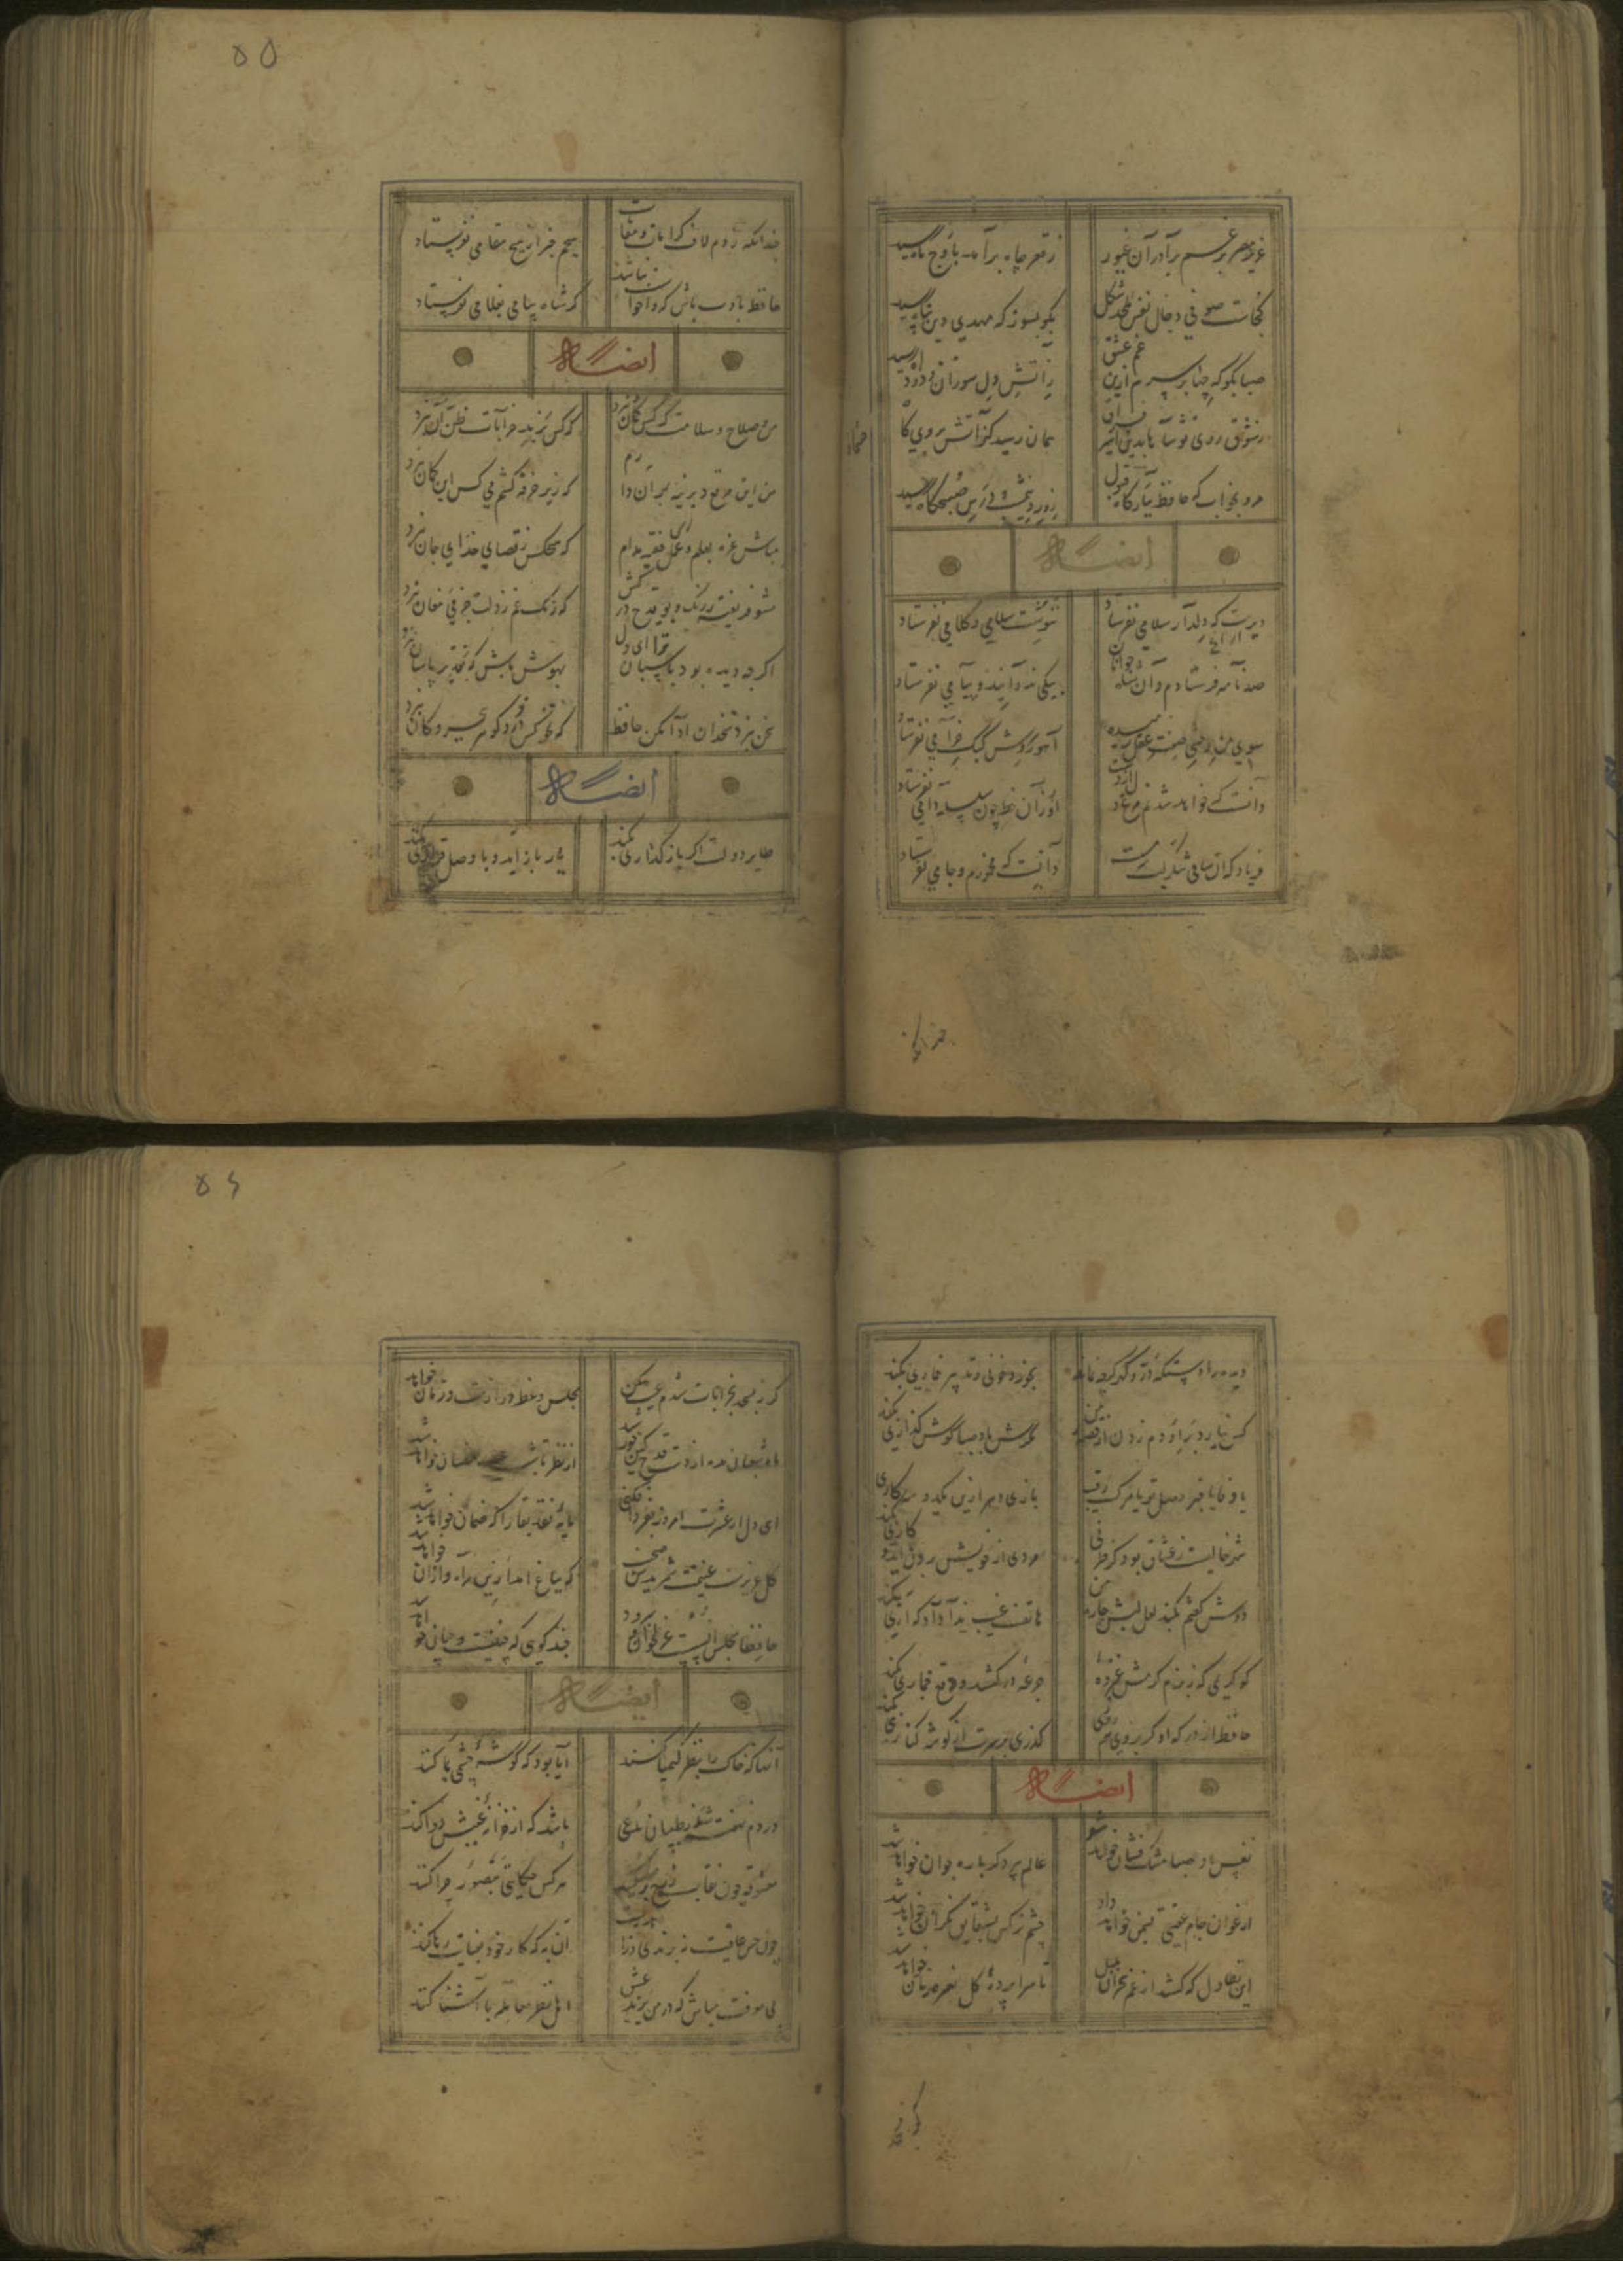 عزیز مصر برغم برادران غیور
ز قعر چاه برآمد باوج ماه رسید
کجاست صوفی دجال فعل ملحد شکل
بگو بسوز که مهدی دین پناه رسید
صبا بگو که چها بر سرم ازین غم عشق
ز آتش دل سوزان و دود آه رسید
ز شوق روی تو شاها بدین اسیر فراق
همان رسید کز آتش بروی کاه
مرو بخواب که حافظ ببارگاه قبول
ز ورد نیمشب و درس صبحگاه رسید
ایضاً له
دیرست که دلدار سلامی نفرستاد
ننوشت سلامی و کلامی نفرستاد
صد نامه فرستادم و آن شاه جوانان
پیکی ندوانید و پیامی نفرستاد
سوی من وحشی صفت عقل رمیده
آهو روش کبک خرامی نفرستاد
دانست که خواهد شدنم مرغ دل از دست
وز آن خط چون سلسله دامی نفرستاد
فریاد که آن ساقی شکر لب سرمست
دانست که مخمورم و جامی نفرستاد
چندانکه
۵۵
چندانکه زدم لاف کرامات و مقامات
هیچم خبر از هیچ مقامی نفرستاد
حافظ بادب باش که واخواست نباشد
گر شاه پیامی بغلامی نفرستاد
ایضاً له
من و صلاح و سلامت کس این گمان نبرد
که کس برند خرابات ظن آن نبرد
من این مرقع دیرینه بهر آن دارم
که زیر خرقه کشم می کس این گمان نبرد
مباش غره بعلم و عمل فقیه مدام
که هیچکس ز قضای خدای جان نبرد
مشو فریفته رنگ و بو قدح در کش
که زنگ غم ز دلت جز می مغان نبرد
اگرچه دیده بود پاسبان تو ای دل
بهوش باش که نقد تو پاسبان نبرد
سخن بنزد سخندان ادا مکن حافظ
که تحفه کس در و گوهر ببحر و کان نبرد
ایضاً له
طایر دولت اگر باز گذاری بکند
یار باز آید و با وصل قراری بکند
دیده را دستگه در و گهر گرچه نماند
بخورد خونی و تدبیر نثاری بکند
کس نیارد بر او دم زدن از قصه من
مگرش باد صبا گوش گذاری بکند
یا وفا یا خبر وصل تو یا مرگ رقیب
بازی چرخ ازین یکدو سه کاری بکند
شهر خالیست ز عشاق بود کز طرفی
مردی از خویش برون آید و کاری بکند
دوش گفتم بکند لعل لبش چاره من
هاتف غیب ندا داد که آری بکند
کو کریمی که ز بزم کرمش غمزده
جرعه در کشد و دفع خماری بکند
حافظا از در که او گر نروی هم روزی
گذری بر سرت از گوشه کناری بکند
ایضاً له
نفس باد صبا مشک فشان خواهد شد
عالم پیر دگرباره جوان خواهد شد
ارغوان جام عقیقی بسمن خواهد داد
چشم نرگس بشقایق نگران خواهد شد
این تطاول که کشد از غم هجران بلبل
تا سراپرده گل نعره زنان خواهد شد
گر ز
۵۶
گر ز مسجد بخرابات شدم عیب مکن
مجلس وعظ درازست و زمان خواهد شد
ماه شعبان مده از دست قدح کین خورشید
از نظر تا شب عید رمضان خواهد شد
ای دل ار عشرت امروز بفردا فکنی
مایه نقد بقا را که ضمان خواهد شد
گل عزیزست غنیمت شمریدش صحبت
که بباغ آمد ازین راه و از آن خواهد شد
حافظا مجلس انس است غزل خوان و سرود
چند گویی که چنینست و چنان خواهد شد
ایضاً له
آنها که خاک را بنظر کیمیا کنند
آیا بود که گوشه چشمی بما کنند
دردم نهفته به ز طبیبان مدعی
باشد که از خزانه غیبش دوا کنند
معشوقه چون نقاب ز رخ بر نمی‌کشد
هر کس حکایتی بتصور چرا کنند
چون حسن عاقبت نه برندی و زاهدیست
آن به که کار خود بعنایت رها کنند
بی معرفت مباش که در من یزید عشق
اهل نظر معامله با آشنا کنند